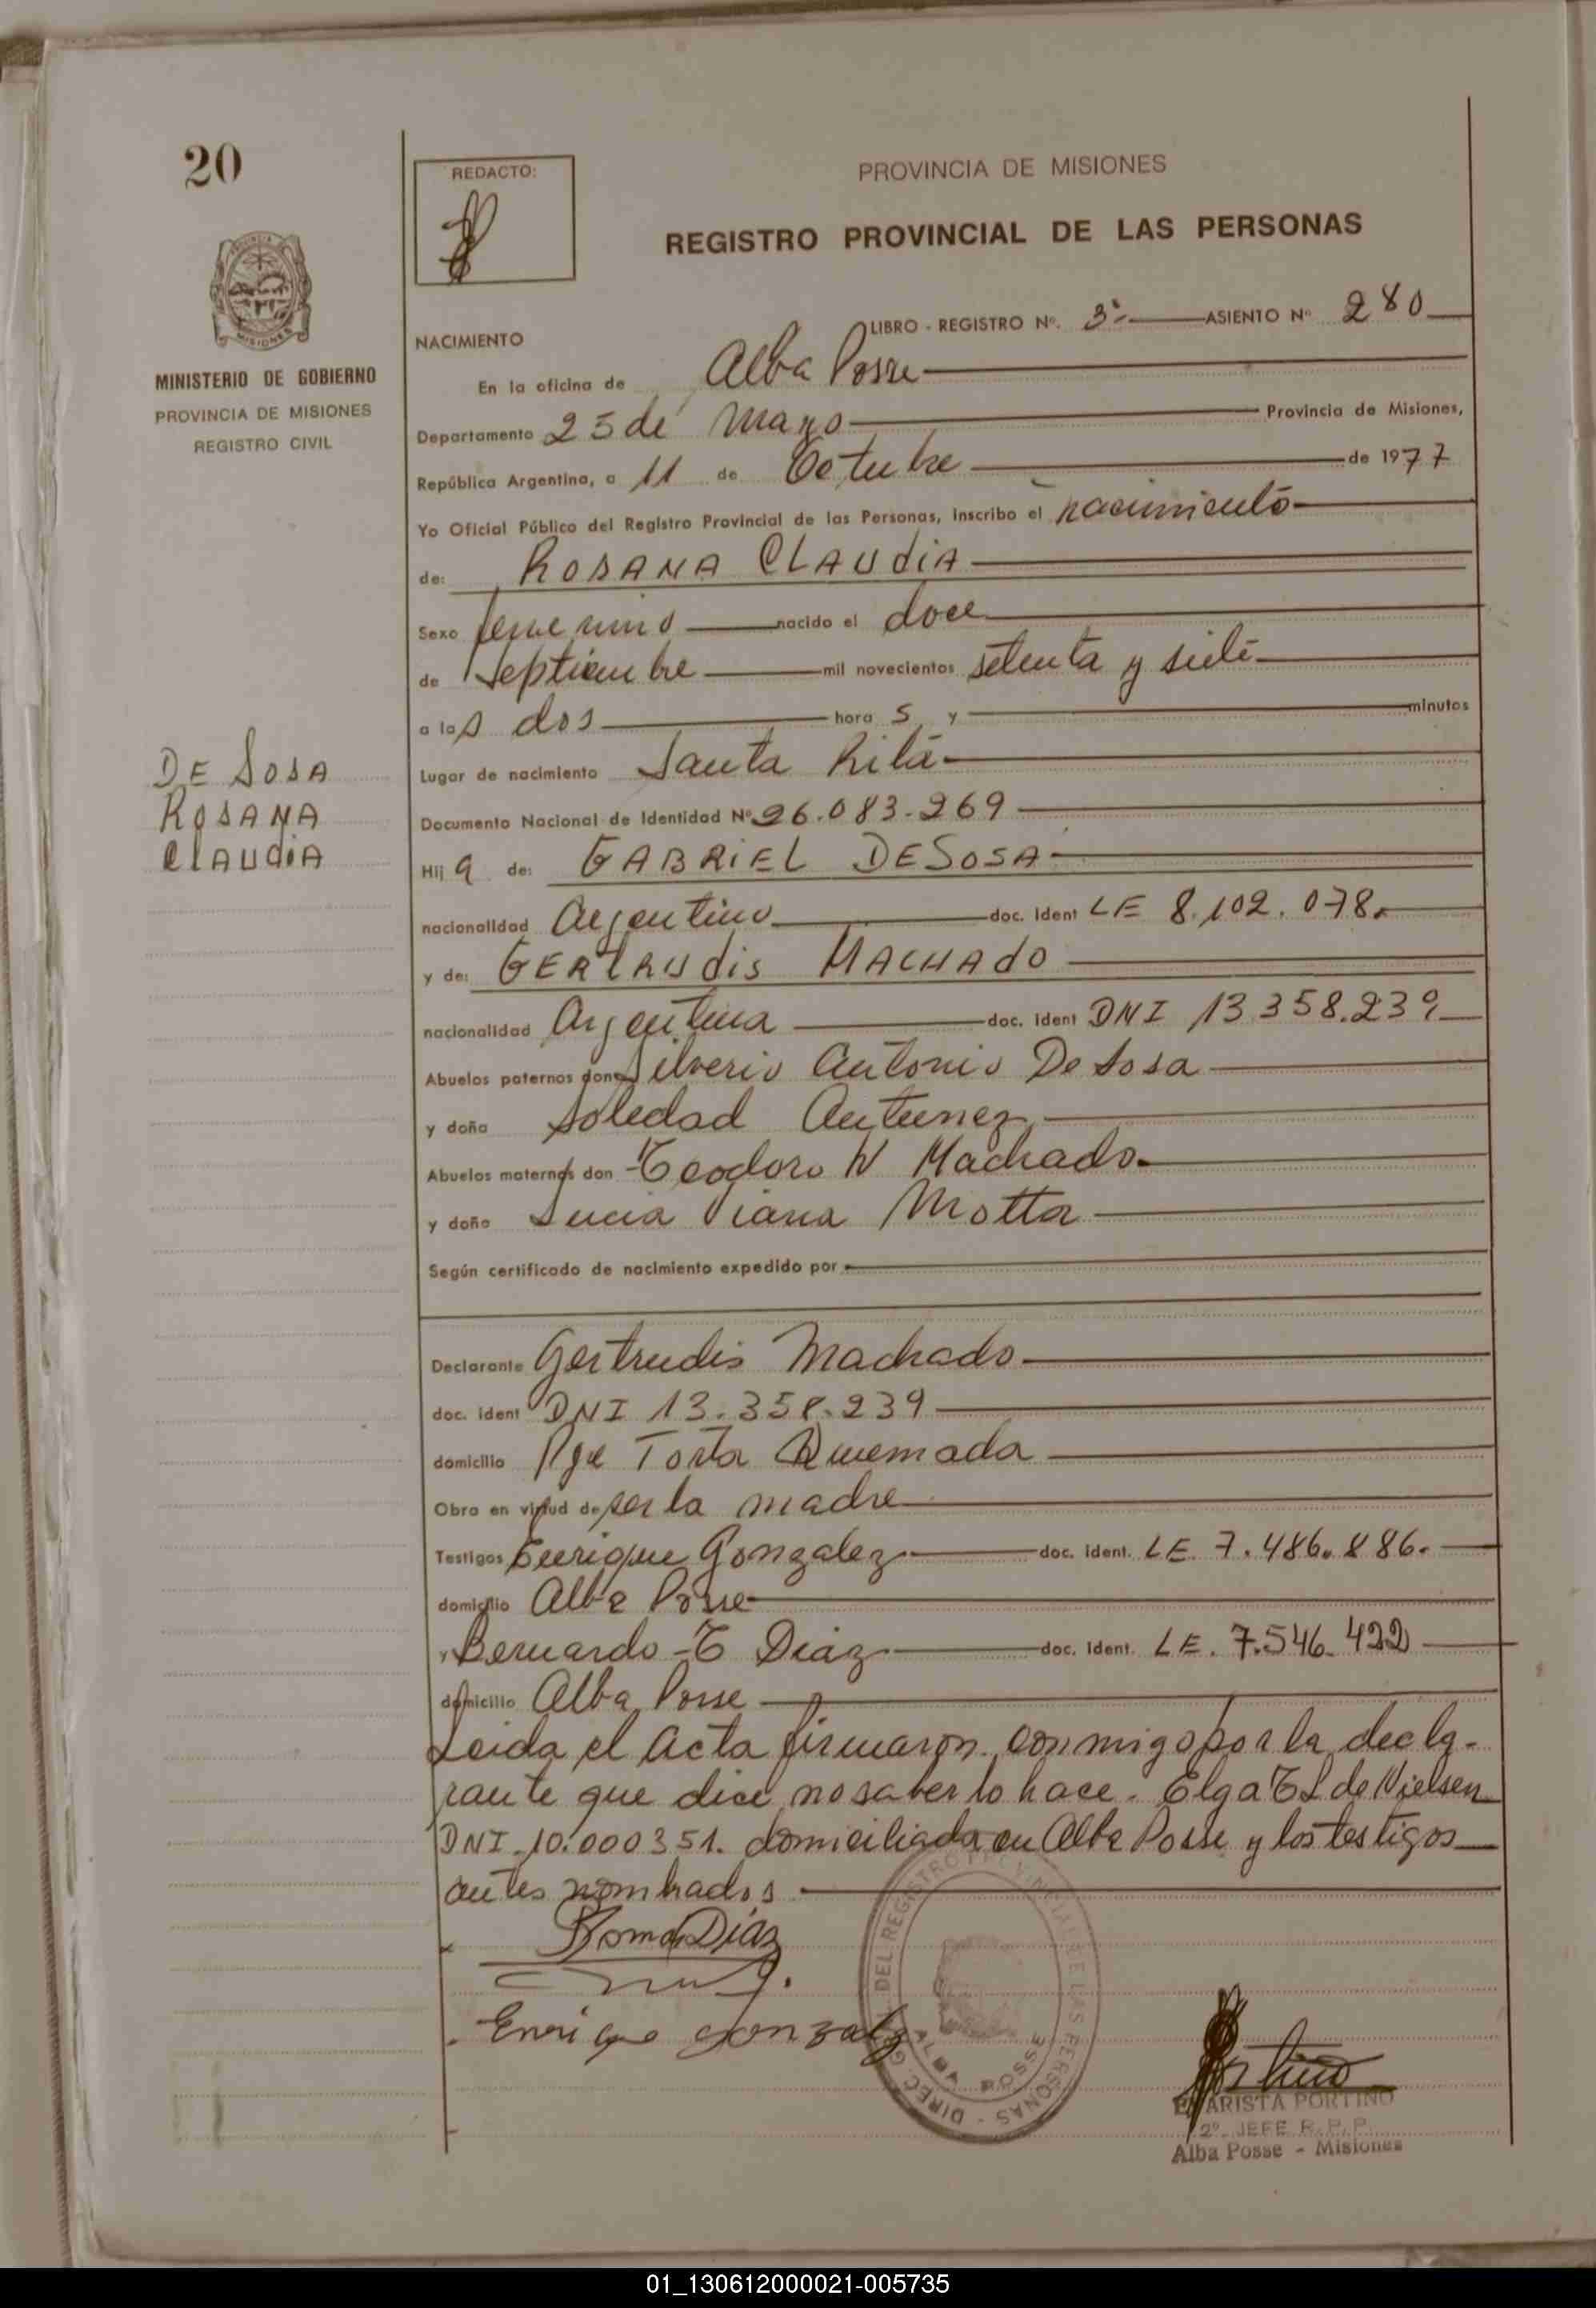 20
REDACTO:
PROVINCIA DE MISIONES
REGISTRO PROVINCIAL DE LAS PERSONAS
MISIONES
MINISTERIO DE GOBIERNO
PROVINCIA DE MISIONES
REGISTRO CIVIL
LIBRO - REGISTRO Nº. 3º- ASIENTO Nº 280
NACIMIENTO
En la oficina de Alba Posse
Departamento 25 de Mayo Provincia de Misiones,
República Argentina, a 11 de Octubre de 1977
Yo Oficial Público del Registro Provincial de las Personas, inscribo el nacimiento
de: ROSANA CLAUDIA
Sexo femenino nacido el doce
de Septiembre mil novecientos setenta y siete
a las dos horas y minutos
Lugar de nacimiento Santa Rita
DE SOSA
ROSANA
CLAUDIA
Documento Nacional de Identidad Nº 26.083.269
Hija de: GABRIEL DE SOSA
nacionalidad Argentino doc. ident LE 8.102.078.
y de: GERTRUDIS MACHADO
nacionalidad Argentina doc. ident DNI 13.358.239
Abuelos paternos don Silverio Antonio De Sosa
y doña Soledad Antunez
Abuelos maternos don Teodoro N Machado
y doña Lucia Viana Motta
Según certificado de nacimiento expedido por
Declarante Gertrudis Machado
doc. ident DNI 13.358.239
domicilio Pje Torta Quemada
Obra en virtud de ser la madre
Testigos Enrique Gonzalez doc. ident. LE 7.486.886.
domicilio Alba Posse
y Bernardo T Diaz doc. ident. LE. 7.546.422
domicilio Alba Posse
Leida el Acta firmaron conmigo por la decla-
rante que dice no saber lo hace. Elga T L de Nielsen
DNI.10.000351. domiciliada en Alba Posse y los testigos
antes nombrados
Diaz
Enrique gonzalez
DIREC. GRAL. DEL REGISTRO PROVINCIAL DE LAS PERSONAS -
ALBA POSSE
EVARISTA PORTINO
2º. JEFE R. P. P.
Alba Posse - Misiones
01_130612000021-005735